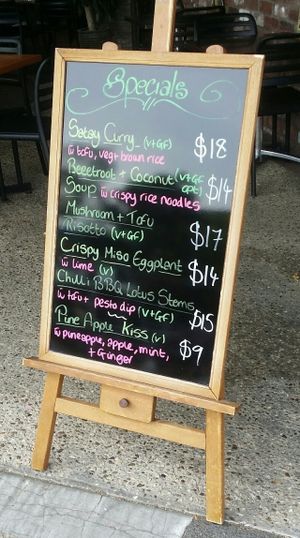 Specials
Satay Curry (V+GF) $18
w tofu, veg + brown rice
Beeetroot + Coconut (V+GF opt) $14
Soup w crispy rice noodles
Mushroom + Tofu
Risotto (V+GF) $17
Crispy Miso Eggplant $14
w lime (V)
Chilli BBQ Lotus Stems
w tofu + pesto dip (V+GF) $15
Pine Apple Kiss (V) $9
w pineapple, apple, mint,
+ Ginger